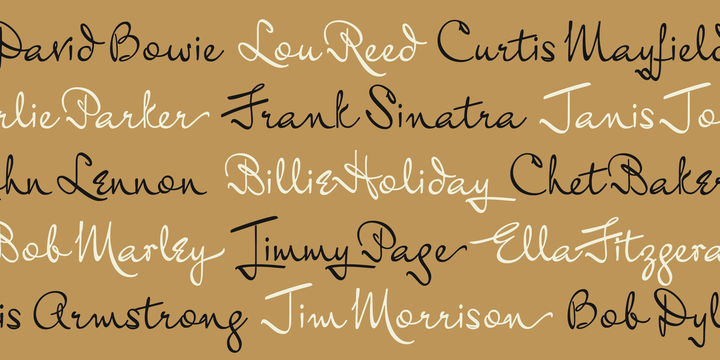 David Bowie Lou Reed Curtis Mayfield
rlie Parker Frank Sinatra Janis Jo
hn Lennon Billie Holiday Chet Baker
Bob Marley Jimmy Page Ella Fitzgera
is Armstrong Jim Morrison Bob Dyl